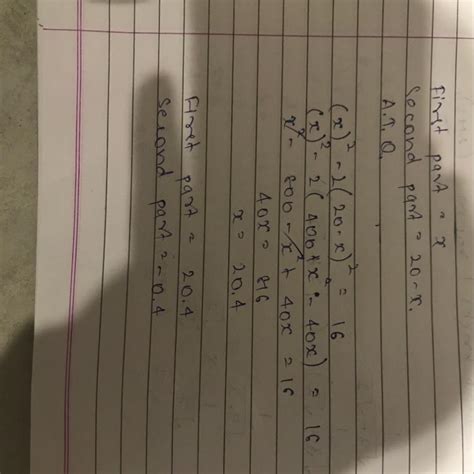 First part = x
Second part = 20-x.
A.T.Q.
(x)² - 2(20-x)² = 16
(x)² - 2(400+x²-40x) = 16
x² - 800 - x² + 40x = 16
40x = 816
x = 20.4
First part = 20.4
Second part = -0.4